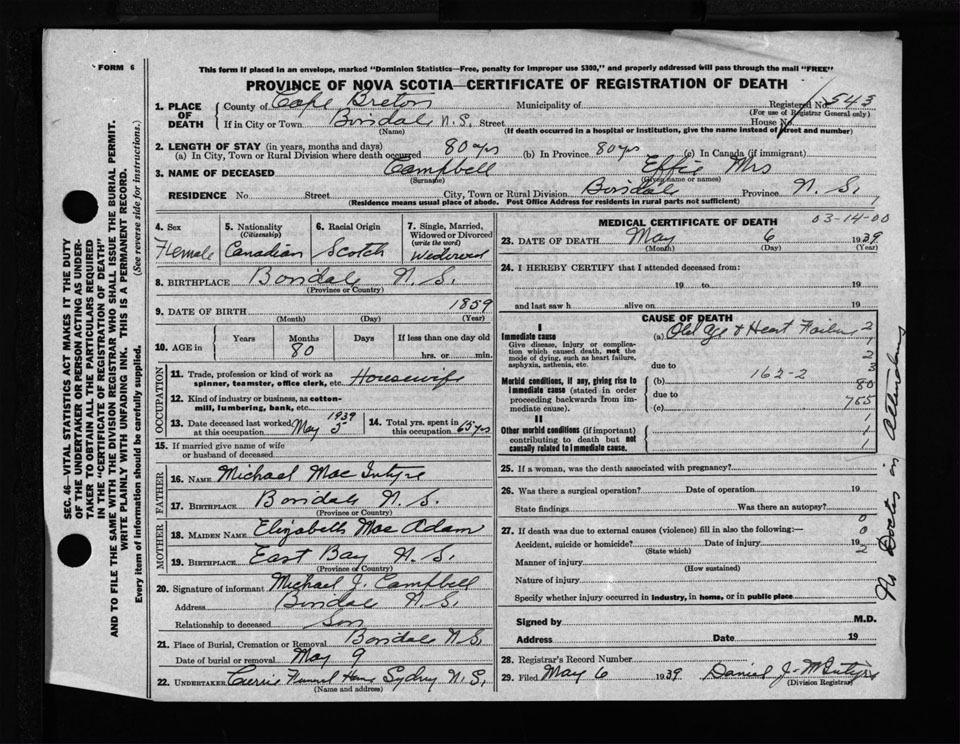 FORM 6
This form if placed in an envelope, marked "Dominion Statistics—Free, penalty for improper use $300," and properly addressed will pass through the mail "FREE"
PROVINCE OF NOVA SCOTIA—CERTIFICATE OF REGISTRATION OF DEATH
SEC. 46—VITAL STATISTICS ACT MAKES IT THE DUTY
OF THE UNDERTAKER OR PERSON ACTING AS UNDER-
TAKER TO OBTAIN ALL THE PARTICULARS REQUIRED
IN THE "CERTIFICATE OF REGISTRATION OF DEATH"
AND TO FILE THE SAME WITH THE DIVISION REGISTRAR WHO SHALL ISSUE THE BURIAL PERMIT.
WRITE PLAINLY WITH UNFADING INK. THIS IS A PERMANENT RECORD.
Every item of information should be carefully supplied. (See reverse side for instructions.)
1. PLACE OF DEATH County of Cape Breton Municipality of Registered No. 543
(For use of Registrar General only)
If in City or Town Boisdale N.S. Street House No.
(Name) (If death occurred in a hospital or institution, give the name instead of street and number)
2. LENGTH OF STAY (in years, months and days)
(a) In City, Town or Rural Division where death occurred 80 yrs (b) In Province 80 yrs (c) In Canada (if immigrant)
3. NAME OF DECEASED Campbell Effie Mrs
(Surname) (Given name or names)
RESIDENCE No. Street City, Town or Rural Division Boisdale Province N.S.
(Residence means usual place of abode. Post Office Address for residents in rural parts not sufficient)
4. Sex
Female
5. Nationality
(Citizenship)
Canadian
6. Racial Origin
Scotch
7. Single, Married,
Widowed or Divorced
(write the word)
Widowed
8. BIRTHPLACE Boisdale N.S.
(Province or Country)
9. DATE OF BIRTH 1859
(Month) (Day) (Year)
10. AGE in Years Months Days If less than one day old
80 hrs. or min.
OCCUPATION
11. Trade, profession or kind of work as
spinner, teamster, office clerk, etc. Housewife
12. Kind of industry or business, as cotton-
mill, lumbering, bank, etc.
13. Date deceased last worked
at this occupation May 5 1939
14. Total yrs. spent in
this occupation 65 yrs
15. If married give name of wife
or husband of deceased
FATHER
16. NAME Michael Mac Intyre
17. BIRTHPLACE Boisdale N.S.
(Province or Country)
MOTHER
18. MAIDEN NAME Elizabeth Mac Adam
19. BIRTHPLACE East Bay N.S.
(Province or Country)
20. Signature of informant Michael J. Campbell
Address Boisdale N.S.
Relationship to deceased Son
21. Place of Burial, Cremation or Removal Boisdale N.S.
Date of burial or removal May 9
22. UNDERTAKER Currie Funeral Home Sydney N.S.
(Name and address)
MEDICAL CERTIFICATE OF DEATH 03-14-00
23. DATE OF DEATH May 6 1939
(Month) (Day) (Year)
24. I HEREBY CERTIFY that I attended deceased from:
19 to 19
and last saw h alive on 19
CAUSE OF DEATH
I
Immediate cause (a) Old Age & Heart Failure 2
Give disease, injury or complica-
tion which caused death, not the
mode of dying, such as heart failure,
asphyxia, asthenia, etc. due to
1
2
3
Morbid conditions, if any, giving rise to
immediate cause (stated in order
proceeding backwards from im-
mediate cause).
(b) 162-2 80
due to
(c) 765
II
Other morbid conditions (if important)
contributing to death but not
causally related to immediate cause.
1
1
1
25. If a woman, was the death associated with pregnancy?
26. Was there a surgical operation? Date of operation 19
State findings Was there an autopsy?
27. If death was due to external causes (violence) fill in also the following:—
Accident, suicide or homicide? Date of injury 19
(State which)
0
0
2
Manner of injury
(How sustained)
Nature of injury
Specify whether injury occurred in industry, in home, or in public place
Signed by M.D.
Address Date 19
28. Registrar's Record Number
29. Filed May 6 1939 Daniel J. McIntyre
(Division Registrar)
No Doctor in Attendance